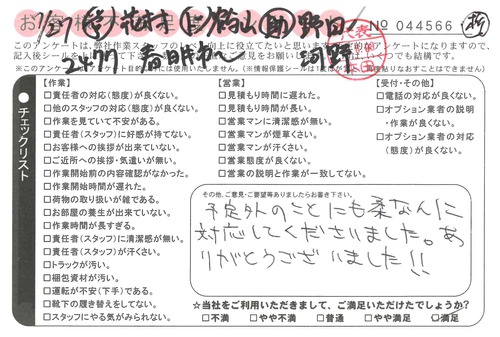 1/27
No 044566
2t77 春日井へ
このアンケートは、弊社作業スタッフの
【作業】
□責任者の対応(態度)が良くない。
□他のスタッフの対応(態度)が良くない。
□作業を見ていて不安がある。
□責任者(スタッフ)に好感が持てない。
□お客様への挨拶が出来ていない。
□ご近所への挨拶・気遣いが無い。
□作業開始前の内容確認がなかった。
□作業開始時間が遅れた。
□荷物の取り扱いが雑である。
□お部屋の養生が出来ていない。
□作業時間が長すぎる。
□責任者(スタッフ)に清潔感が無い。
□責任者(スタッフ)が汗くさい。
□トラックが汚い。
□梱包資材が汚い。
□運転が不安(下手)である。
□靴下の履き替えをしてない。
□スタッフにやる気がみられない。
【営業】
□見積もり時間に遅れた。
□見積もり時間が長い。
□営業マンに清潔感が無い。
□営業マンが煙草くさい。
□営業マンが汗くさい。
□営業態度が良くない。
□営業の説明と作業が一致してない。
【受付・その他】
□電話の対応が良くない。
□オプション業者の説明
・作業が良くない。
□オプション業者の対応
(態度)が良くない。
チェックリスト
その他、ご意見・ご要望等ありましたらお書き下さい。
予定外のことにも柔なんに
対応してくださいました。あ
りがとうございました!!
☆当社をご利用いただきまして、ご満足いただけたでしょうか?
□不満 □やや不満 □普通 □やや満足 □満足